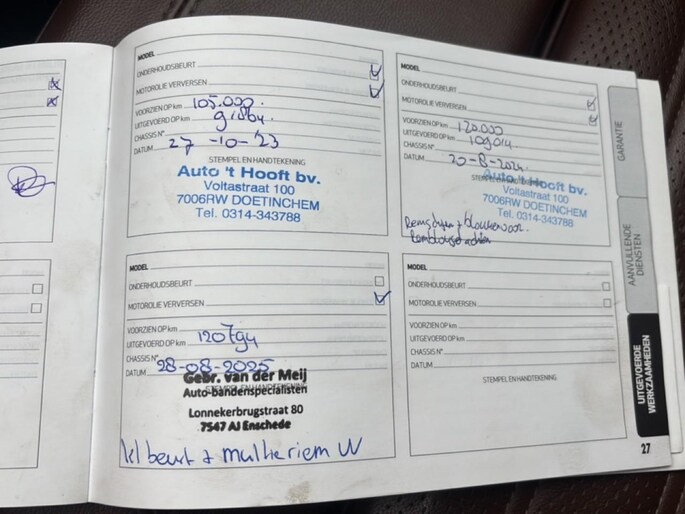 MODEL
ONDERHOUDSBEURT
MOTOROLIE VERVERSEN
VOORZIEN OP km 105.000
UITGEVOERD OP km
CHASSIS N°
DATUM 27-10-'23
STEMPEL EN HANDTEKENING
Auto 't Hooft bv.
Voltastraat 100
7006RW DOETINCHEM
Tel. 0314-343788
MODEL
ONDERHOUDSBEURT
MOTOROLIE VERVERSEN
VOORZIEN OP km 120.000
UITGEVOERD OP km
CHASSIS N°
DATUM 20-8-2024
Auto 't Hooft bv.
Voltastraat 100
7006RW DOETINCHEM
Tel. 0314-343788
MODEL
ONDERHOUDSBEURT
MOTOROLIE VERVERSEN
VOORZIEN OP km
UITGEVOERD OP km 120794
CHASSIS N°
DATUM 28-08-2025
STEMPEL EN HANDTEKENING
Gebr. van der Meij
Auto-bandenspecialisten
Lonnekerbrugstraat 80
7547 AJ Enschede
kl beurt + multieriem VV
MODEL
ONDERHOUDSBEURT
MOTOROLIE VERVERSEN
VOORZIEN OP km
UITGEVOERD OP km
CHASSIS N°
DATUM
STEMPEL EN HANDTEKENING
GARANTIE
AANVULLENDE
DIENSTEN
UITGEVOERDE
WERKZAAMHEDEN
27